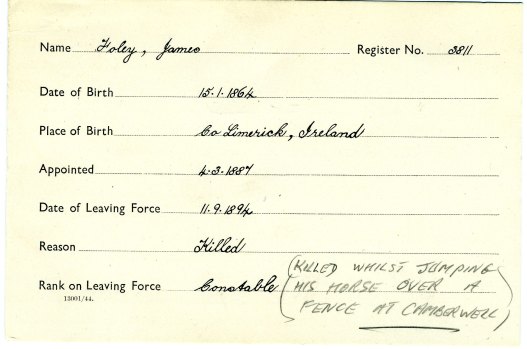 Name Foley, James Register No. 3811
Date of Birth 15.1.1864
Place of Birth Co Limerick, Ireland
Appointed 4.3.1887
Date of Leaving Force 11.9.1894
Reason Killed
Rank on Leaving Force Constable
(KILLED WHILST JUMPING
HIS HORSE OVER A
FENCE AT CAMBERWELL)
13001/44.